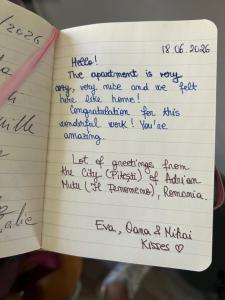 /2026
ille
alie
18.06.2026
Hello!
The apartment is very
cozy, very nice and we felt
here like home!
Congratulation for this
wonderful work! You're
amazing.
Lot of greetings from
the City (Pitești) of Adrian
Mutu (Il Fenomeno), Romania.
Eva, Oana & Mihai
Kisses ♡